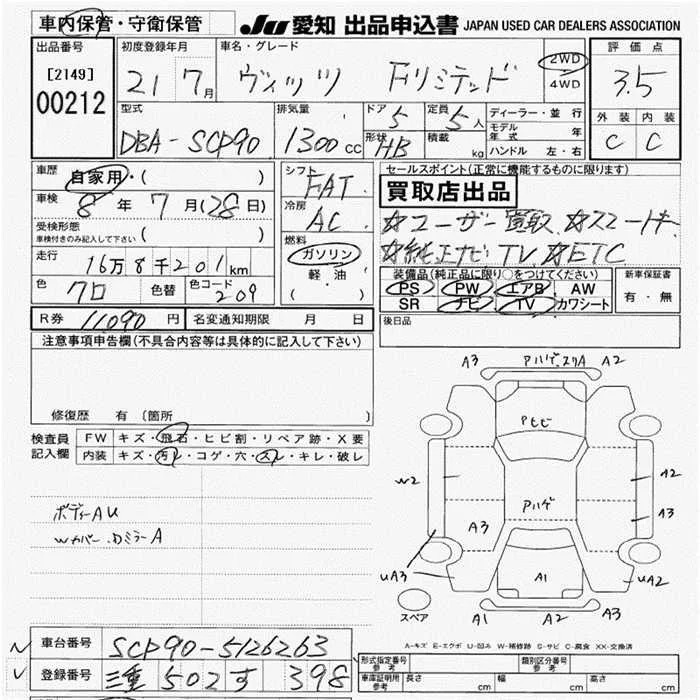 車内保管・守衛保管
JU 愛知 出品申込書 JAPAN USED CAR DEALERS ASSOCIATION
出品番号
[2149]
00212
初度登録年月
21 7月
車名・グレード
ヴィッツ Fリミテッド
2WD
4WD
評価点
3.5
外装 内装
C C
型式
DBA-SCP90
排気量
1300cc
ドア 5
形状 HB
定員 5人
積載 kg
ディーラー・並行
モデル年式 年
ハンドル 左・右
車歴 自家用・( )
車検 8年 7月(28日)
受検形態
車検付きのみ記入して下さい ( )
走行 16万8千201km
色 クロ 色替 色コード 209
シフト
FAT
冷房
AC
燃料
ガソリン
軽油
( )
セールスポイント(正常に機能するものに限ります)
買取店出品
☆ユーザー買取 ☆スマートキー
☆純正ナビ TV ☆ETC
装備品(純正品に限り○をつけてください)
PS PW エアB AW
SR ナビ TV カワシート
新車保証書
有・無
R券 11090円 名変通知期限 月 日
後日品
注意事項申告欄(不具合内容等は具体的に記入して下さい)
修復歴 有 (箇所
検査員記入欄
FW キズ・飛石・ヒビ割・リペア跡・X要
内装 キズ・汚レ・コゲ・穴・スレ・キレ・破レ
ボディーAU
Wカバー.Dミラー A
A3 Pハゲ.スリA A2
Pセビ
W2
A2
Pハゲ
A3
A3
UA3
A1
UA2
スペア
A1 A2 A3
A-キズ E-エクボ U-凹み W-補修跡 S-サビ C-腐食 XX-交換済
車台番号 SCP90-5126263
登録番号 三重 502 す 398
形式指定番号 参考
類別区分番号 参考
車庫証明用 参考
長さ cm 幅 cm 高さ cm